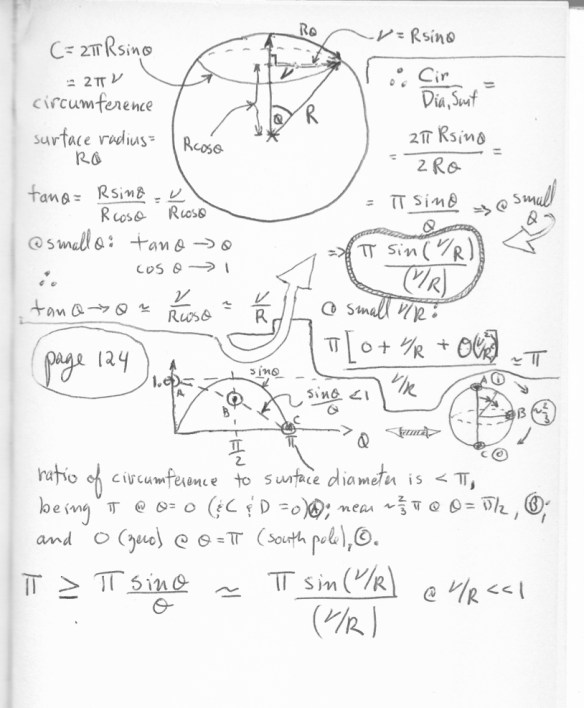 Rθ
r = Rsinθ
C = 2πRsinθ
= 2πr
circumference
surface radius=
Rθ
r
θ
R
Rcosθ
∴ Cir/Dia,Surf =
= 2πRsinθ / 2Rθ =
= π sinθ/θ ⇒ @ small θ
tanθ = Rsinθ/Rcosθ = r/Rcosθ
@smallθ: tanθ → θ
cosθ → 1
∴
tanθ → θ ≃ r/Rcosθ ≃ r/R
⇒ π sin(r/R)/(r/R)
@ small r/R:
π[0 + r/R + O(r²/R²)] / r/R ≃ π
page 124
1.0
A
sinθ
sinθ/θ < 1
B
C
π/2
π
θ
A ①
B ~2/3
C ⓪
ratio of circumference to surface diameter is < π,
being π @ θ=0 (&C & D =0) Ⓐ; near ~2/3 π @ θ = π/2, Ⓑ;
and 0 (zero) @ θ = π (south pole), Ⓒ.
π ≥ π sinθ/θ ≃ π sin(r/R)/(r/R) @ r/R <<1